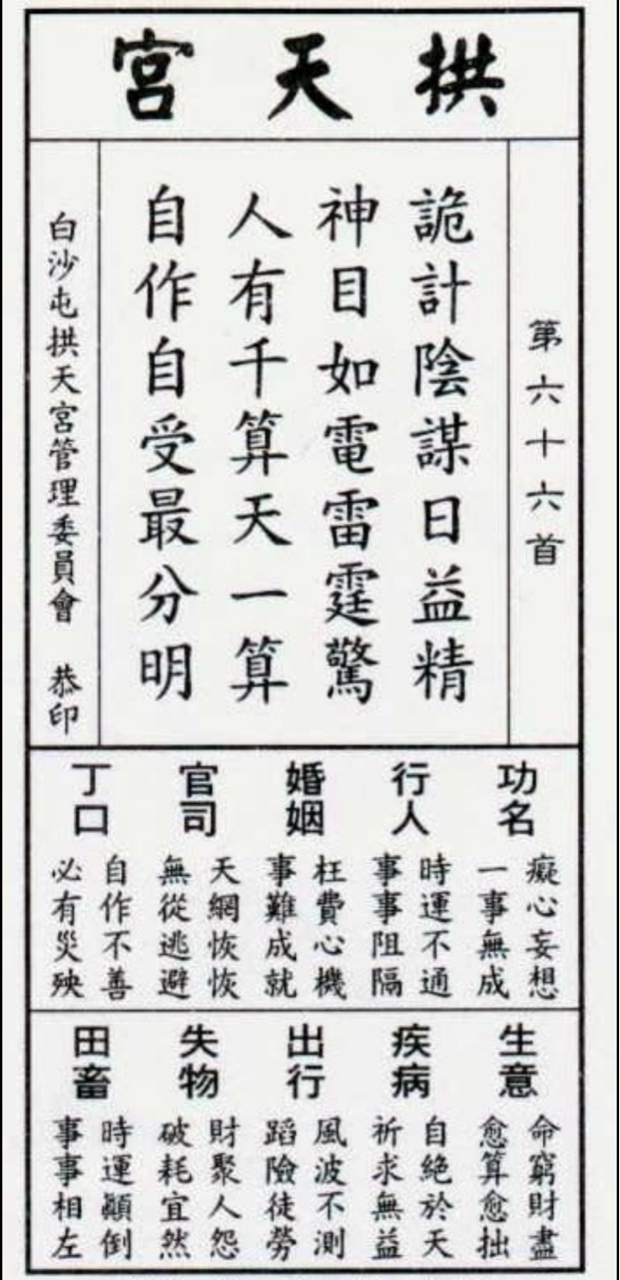 拱天宮
第六十六首
詭計陰謀日益精
神目如電雷霆驚
人有千算天一算
自作自受最分明
白沙屯拱天宮管理委員會 恭印
功名
癡心妄想
一事無成
行人
時運不通
事事阻隔
婚姻
枉費心機
事難成就
官司
天網恢恢
無從逃避
丁口
自作不善
必有災殃
生意
命窮財盡
愈算愈拙
疾病
自絕於天
祈求無益
出行
風波不測
蹈險徒勞
失物
財聚人怨
破耗宜然
田畜
時運顚倒
事事相左